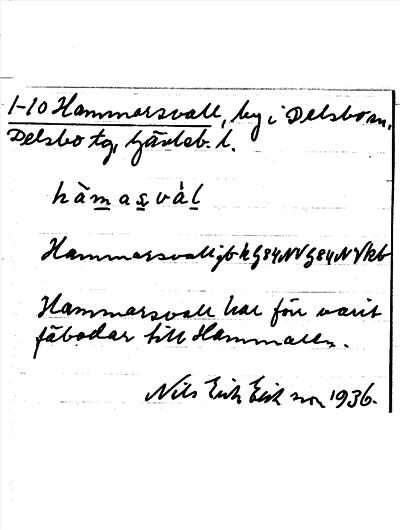 1-10 Hammarsvall, by i Delsbo sn,
Delsbo tg, Gävleb. l.
hàmasvál
Hammarsvall jbk
Hammarsvall har förr varit
fäbodar till Hammaren.
Nils Erik Eriksson 1936.